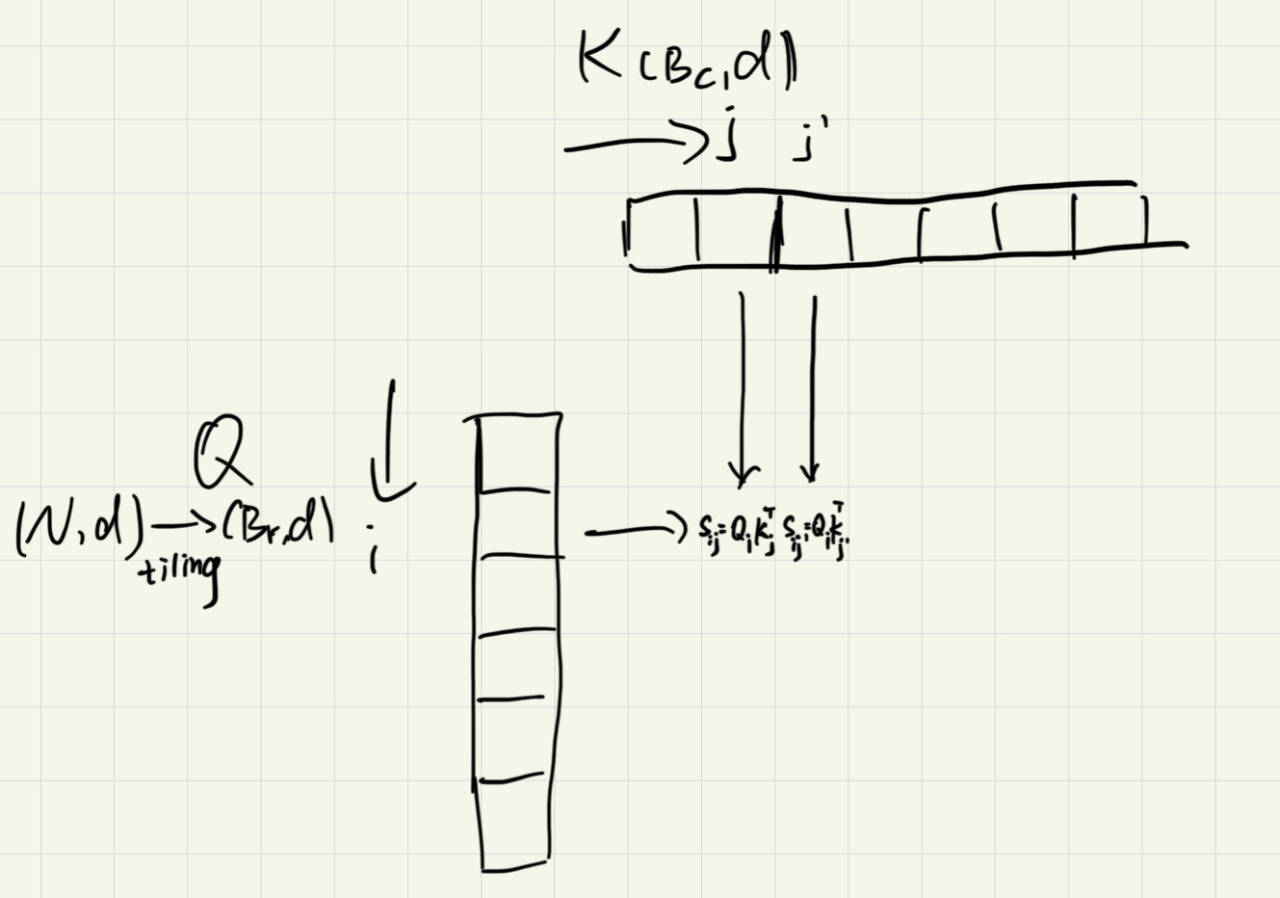 K(Bc,d)
j j'
Q
(N,d)→(Br,d) i
tiling
Sij=QiKjᵀ Sij'=QiKj'ᵀ